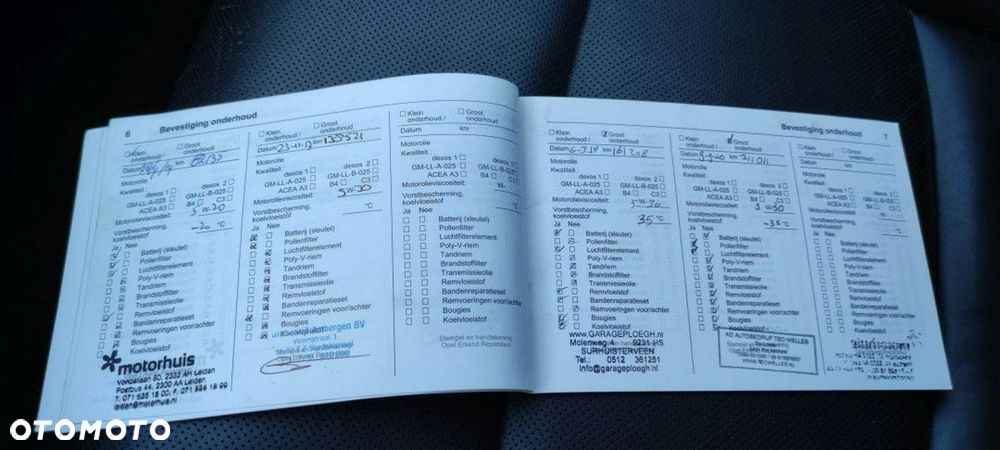 6 Bevestiging onderhoud
Klein onderhoud / Groot onderhoud
Datum km
Motorolie
Kwaliteit : dexos 1 dexos 2
GM-LL-A-025 GM-LL-B-025
ACEA A3 B4 C3
Motorolieviscositeit: 5 W-30
Vorstbescherming, koelvloeistof -20 °C
Ja Nee
Batterij (sleutel)
Pollenfilter
Luchtfilterelement
Poly-V-riem
Tandriem
Brandstoffilter
Transmissieolie
Remvloeistof
Bandenreparatieset
Remvoeringen voor/achter
Bougies
Koelvloeistof
motorhuis
Vondellaan 80, 2332 AH Leiden
Postbus 44, 2300 AA Leiden
leiden@motorhuis.nl
Klein onderhoud / Groot onderhoud
Datum 23-11-17 km
Motorolie
Kwaliteit : dexos 1 dexos 2
GM-LL-A-025 GM-LL-B-025
ACEA A3 B4 C3
Motorolieviscositeit: 5 W-30
Vorstbescherming, koelvloeistof °C
Ja Nee
Batterij (sleutel)
Pollenfilter
Luchtfilterelement
Poly-V-riem
Tandriem
Brandstoffilter
Transmissieolie
Remvloeistof
Bandenreparatieset
Remvoeringen voor/achter
Bougies
Koelvloeistof
bergen BV
Klein onderhoud / Groot onderhoud
Datum km
Motorolie
Kwaliteit : dexos 1 dexos 2
GM-LL-A-025 GM-LL-B-025
ACEA A3 B4 C3
Motorolieviscositeit: W-
Vorstbescherming, koelvloeistof °C
Ja Nee
Batterij (sleutel)
Pollenfilter
Luchtfilterelement
Poly-V-riem
Tandriem
Brandstoffilter
Transmissieolie
Remvloeistof
Bandenreparatieset
Remvoeringen voor/achter
Bougies
Koelvloeistof
Stempel en handtekening
Opel Erkend Reparateur
Bevestiging onderhoud 7
Klein onderhoud / Groot onderhoud
Datum 6-3-19 km 161208
Motorolie
Kwaliteit : dexos 1 dexos 2
GM-LL-A-025 GM-LL-B-025
ACEA A3 B4 C3
Motorolieviscositeit: 5 W-30
Vorstbescherming, koelvloeistof 35 °C
Ja Nee
Batterij (sleutel)
Pollenfilter
Luchtfilterelement
Poly-V-riem
Tandriem
Brandstoffilter
Transmissieolie
Remvloeistof
Bandenreparatieset
Remvoeringen voor/achter
Bougies
Koelvloeistof
www.GARAGEPLOEGH.nl
Molenweg 4 9231 HS
SURHUISTERVEEN
Tel.: 0512 361251
info@garageploegh.nl
Klein onderhoud / Groot onderhoud
Datum 9-9-20 km 211011
Motorolie
Kwaliteit : dexos 1 dexos 2
GM-LL-A-025 GM-LL-B-025
ACEA A3 B4 C3
Motorolieviscositeit: 5 W30
Vorstbescherming, koelvloeistof °C
Ja Nee
Batterij (sleutel)
Pollenfilter
Luchtfilterelement
Poly-V-riem
Tandriem
Brandstoffilter
Transmissieolie
Remvloeistof
Bandenreparatieset
Remvoeringen voor/achter
Bougies
Koelvloeistof
AD AUTOBEDRIJF TEO WELLES
Klein onderhoud / Groot onderhoud
Datum km
Motorolie
Kwaliteit : dexos 1 dexos 2
GM-LL-A-025 GM-LL-B-025
ACEA A3 B4 C3
Motorolieviscositeit: W-
Vorstbescherming, koelvloeistof °C
Ja Nee
Batterij (sleutel)
Pollenfilter
Luchtfilterelement
Poly-V-riem
Tandriem
Brandstoffilter
Transmissieolie
Remvloeistof
Bandenreparatieset
Remvoeringen voor/achter
Bougies
Koelvloeistof
OTOMOTO